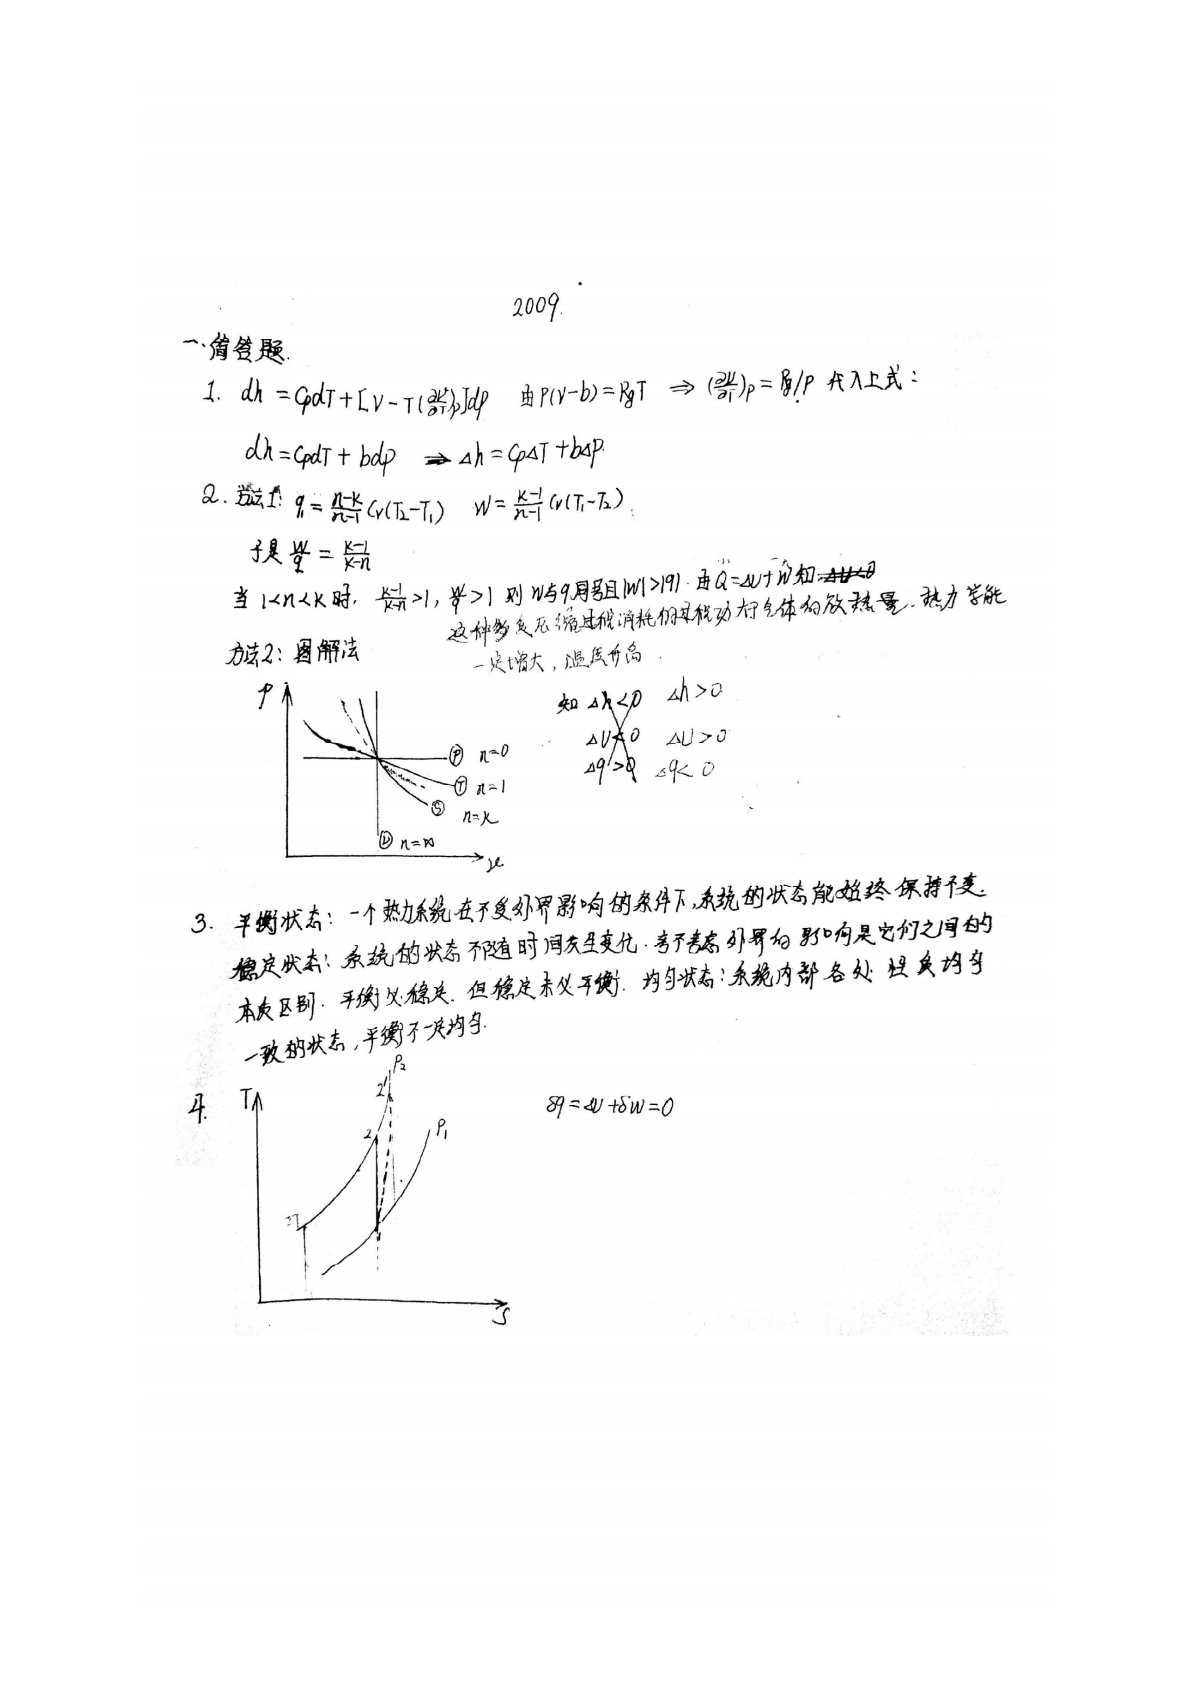 2009.
一.简答题.
1. dh = CpdT+[V-T(∂V/∂T)p]dp 由P(V-b)=RgT ⇒ (∂V/∂T)p = Rg/P 代入上式：
dh=CpdT+bdp ⇒ Δh=CpΔT+bΔP.
2. 方法1: q = (n-k)/(n-1) Cv(T2-T1) W = (k-1)/(n-1) Cv(T1-T2)
于是 W/q = (k-1)/(k-n)
当 1<n<k 时, (k-1)/(k-n) >1, W/q >1 则 W与q同号且|W|>|q|. 由Q=ΔU+W知 ΔU<0
这种多变压缩过程消耗的过程功大于气体的放热量. 热力学能
一定增大, 温度升高.
方法2: 图解法
P
知 Δh<0 Δh>0
ΔU<0 ΔU>0
Δq>0 Δq<0
P n=0
T n=1
S
n=k
V n=∞
v
3. 平衡状态: 一个热力系统在不受外界影响的条件下,系统的状态能始终保持不变.
稳定状态: 系统的状态不随时间发生变化. 考不考虑外界的影响是它们之间的
本质区别. 平衡必稳定. 但稳定未必平衡. 均匀状态: 系统内部各处性质均匀
一致的状态, 平衡不一定均匀.
4. T
P2
2'
2
P1
2T
S
δq=dU+δW=0